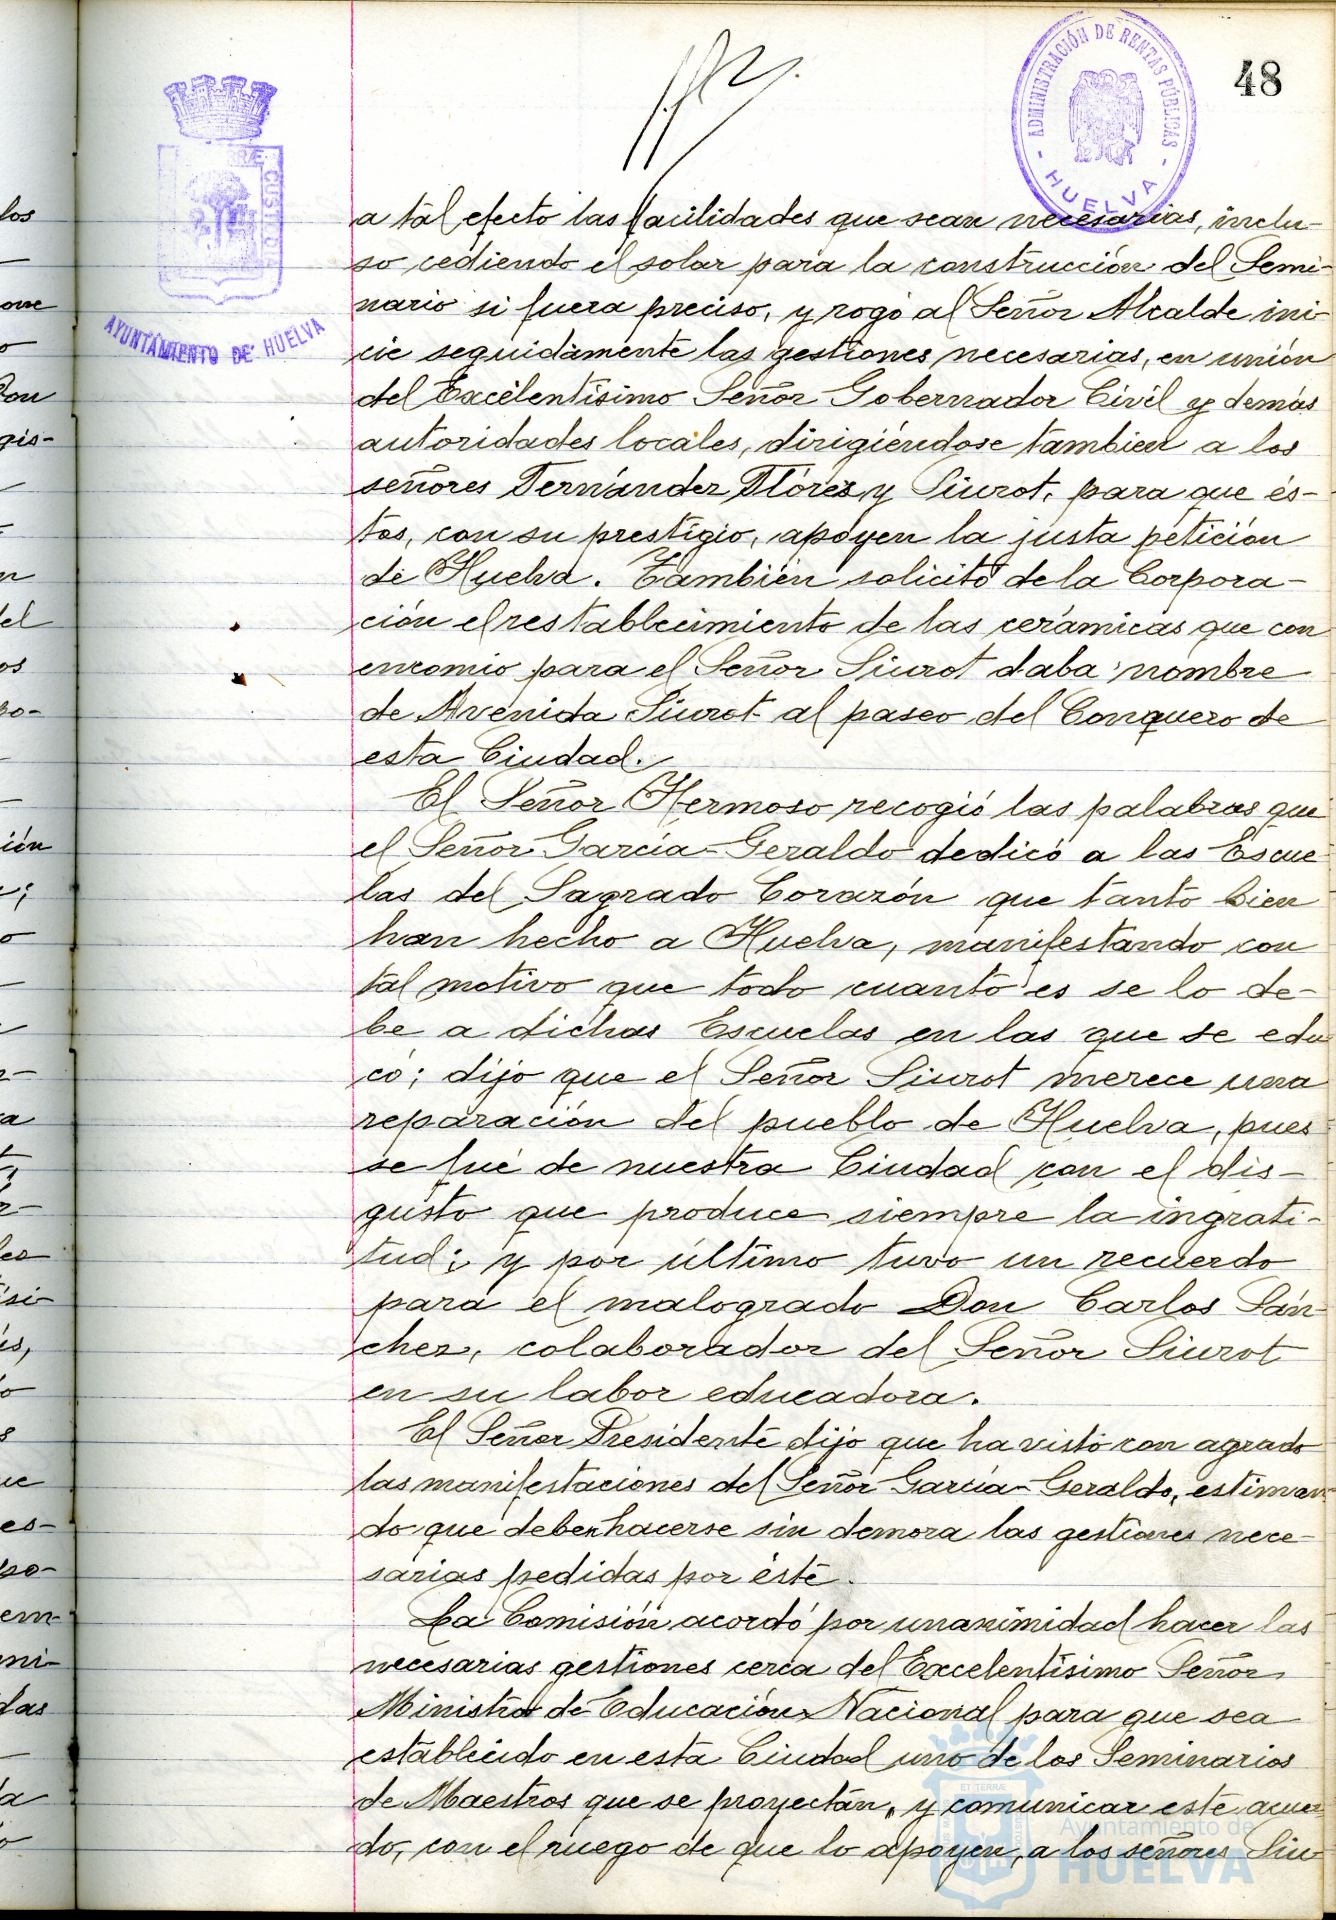 48
ADMINISTRACIÓN DE RENTAS PÚBLICAS
- HUELVA -
TERRÆ CUSTODIA
AYUNTAMIENTO DE HUELVA
a tal efecto las facilidades que sean necesarias, inclu-
so cediendo el solar para la construcción del Semi-
nario si fuera preciso, y rogó al Señor Alcalde ini-
cie seguidamente las gestiones necesarias, en unión
del Excelentísimo Señor Gobernador Civil y demás
autoridades locales, dirigiéndose tambien a los
señores Fernández Flórez y Siurot, para que és-
tos, con su prestigio, apoyen la justa petición
de Huelva. También solicitó de la Corpora-
ción el restablecimiento de las cerámicas que con
encomio para el Señor Siurot daba nombre
de Avenida Siurot al paseo del Conquero de
esta Ciudad.
El Señor Hermoso recogió las palabras que
el Señor García-Geraldo dedicó a las Escue-
las del Sagrado Corazón que tanto bien
han hecho a Huelva, manifestando con
tal motivo que todo cuanto es se lo de-
be a dichas Escuelas en las que se edu
có; dijo que el Señor Siurot merece una
reparación del pueblo de Huelva, pues
se fué de nuestra Ciudad con el dis-
gusto que produce siempre la ingrati-
tud; y por último tuvo un recuerdo
para el malogrado Don Carlos Sán-
chez, colaborador del Señor Siurot
en su labor educadora.
El Señor Presidente dijo que ha visto con agrado
las manifestaciones del Señor García-Geraldo, estiman-
do que deben hacerse sin demora las gestiones nece-
sarias pedidas por éste.
La Comisión acordó por unanimidad hacer las
necesarias gestiones cerca del Excelentísimo Señor
Ministro de Educación Nacional para que sea
establecido en esta Ciudad uno de los Seminarios
de Maestros que se proyectán, y comunicar este acuer-
do, con el ruego de que lo apoyen, a los señores Siu-
ET TERRÆ
Ayuntamiento de
HUELVA